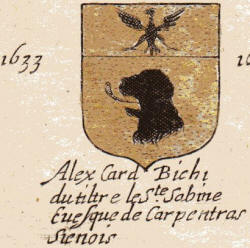 1633
Alex Card Bichi
du tiltre le S.te Sabine
Euesque de Carpentras
Sienois